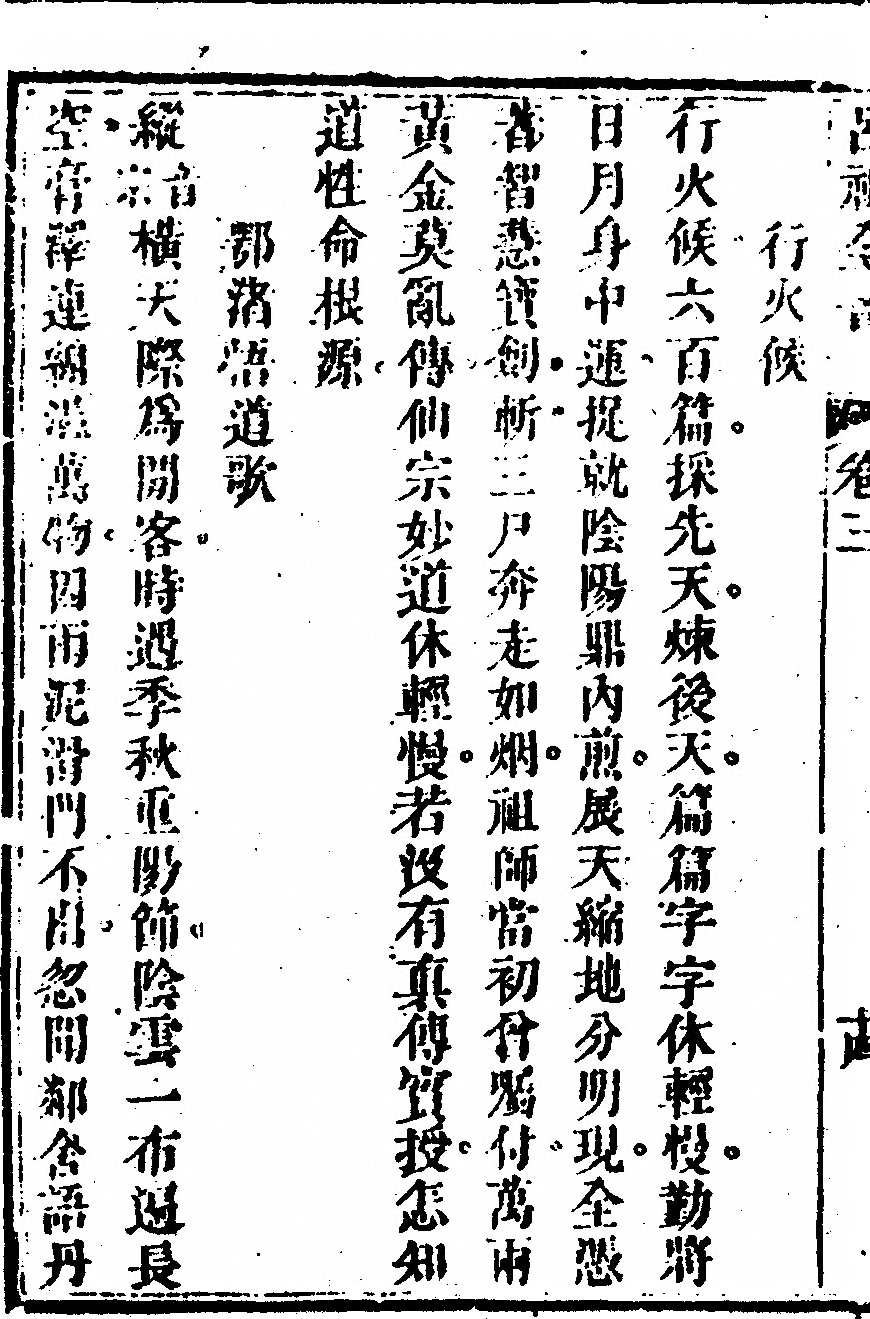 呂祖全書 卷三
行火候
行火候六百篇。採先天。煉後天。篇篇字字休輕慢。勤將
日月身中運。捉就陰陽鼎內煎。展天縮地分明現。全憑
着智慧寶劍。斬三尸奔走如烟。祖師當初曾囑付。萬兩
黃金莫亂傳。仙宗妙道休輕慢。若沒有真傳實授。怎知
道性命根源。
鄂渚悟道歌
縱宗音橫天際爲閒客。時遇季秋重陽節。陰雲一布遍長
空。膏澤連綿滋萬物。因雨泥滑門不出。忽聞鄰舍語丹